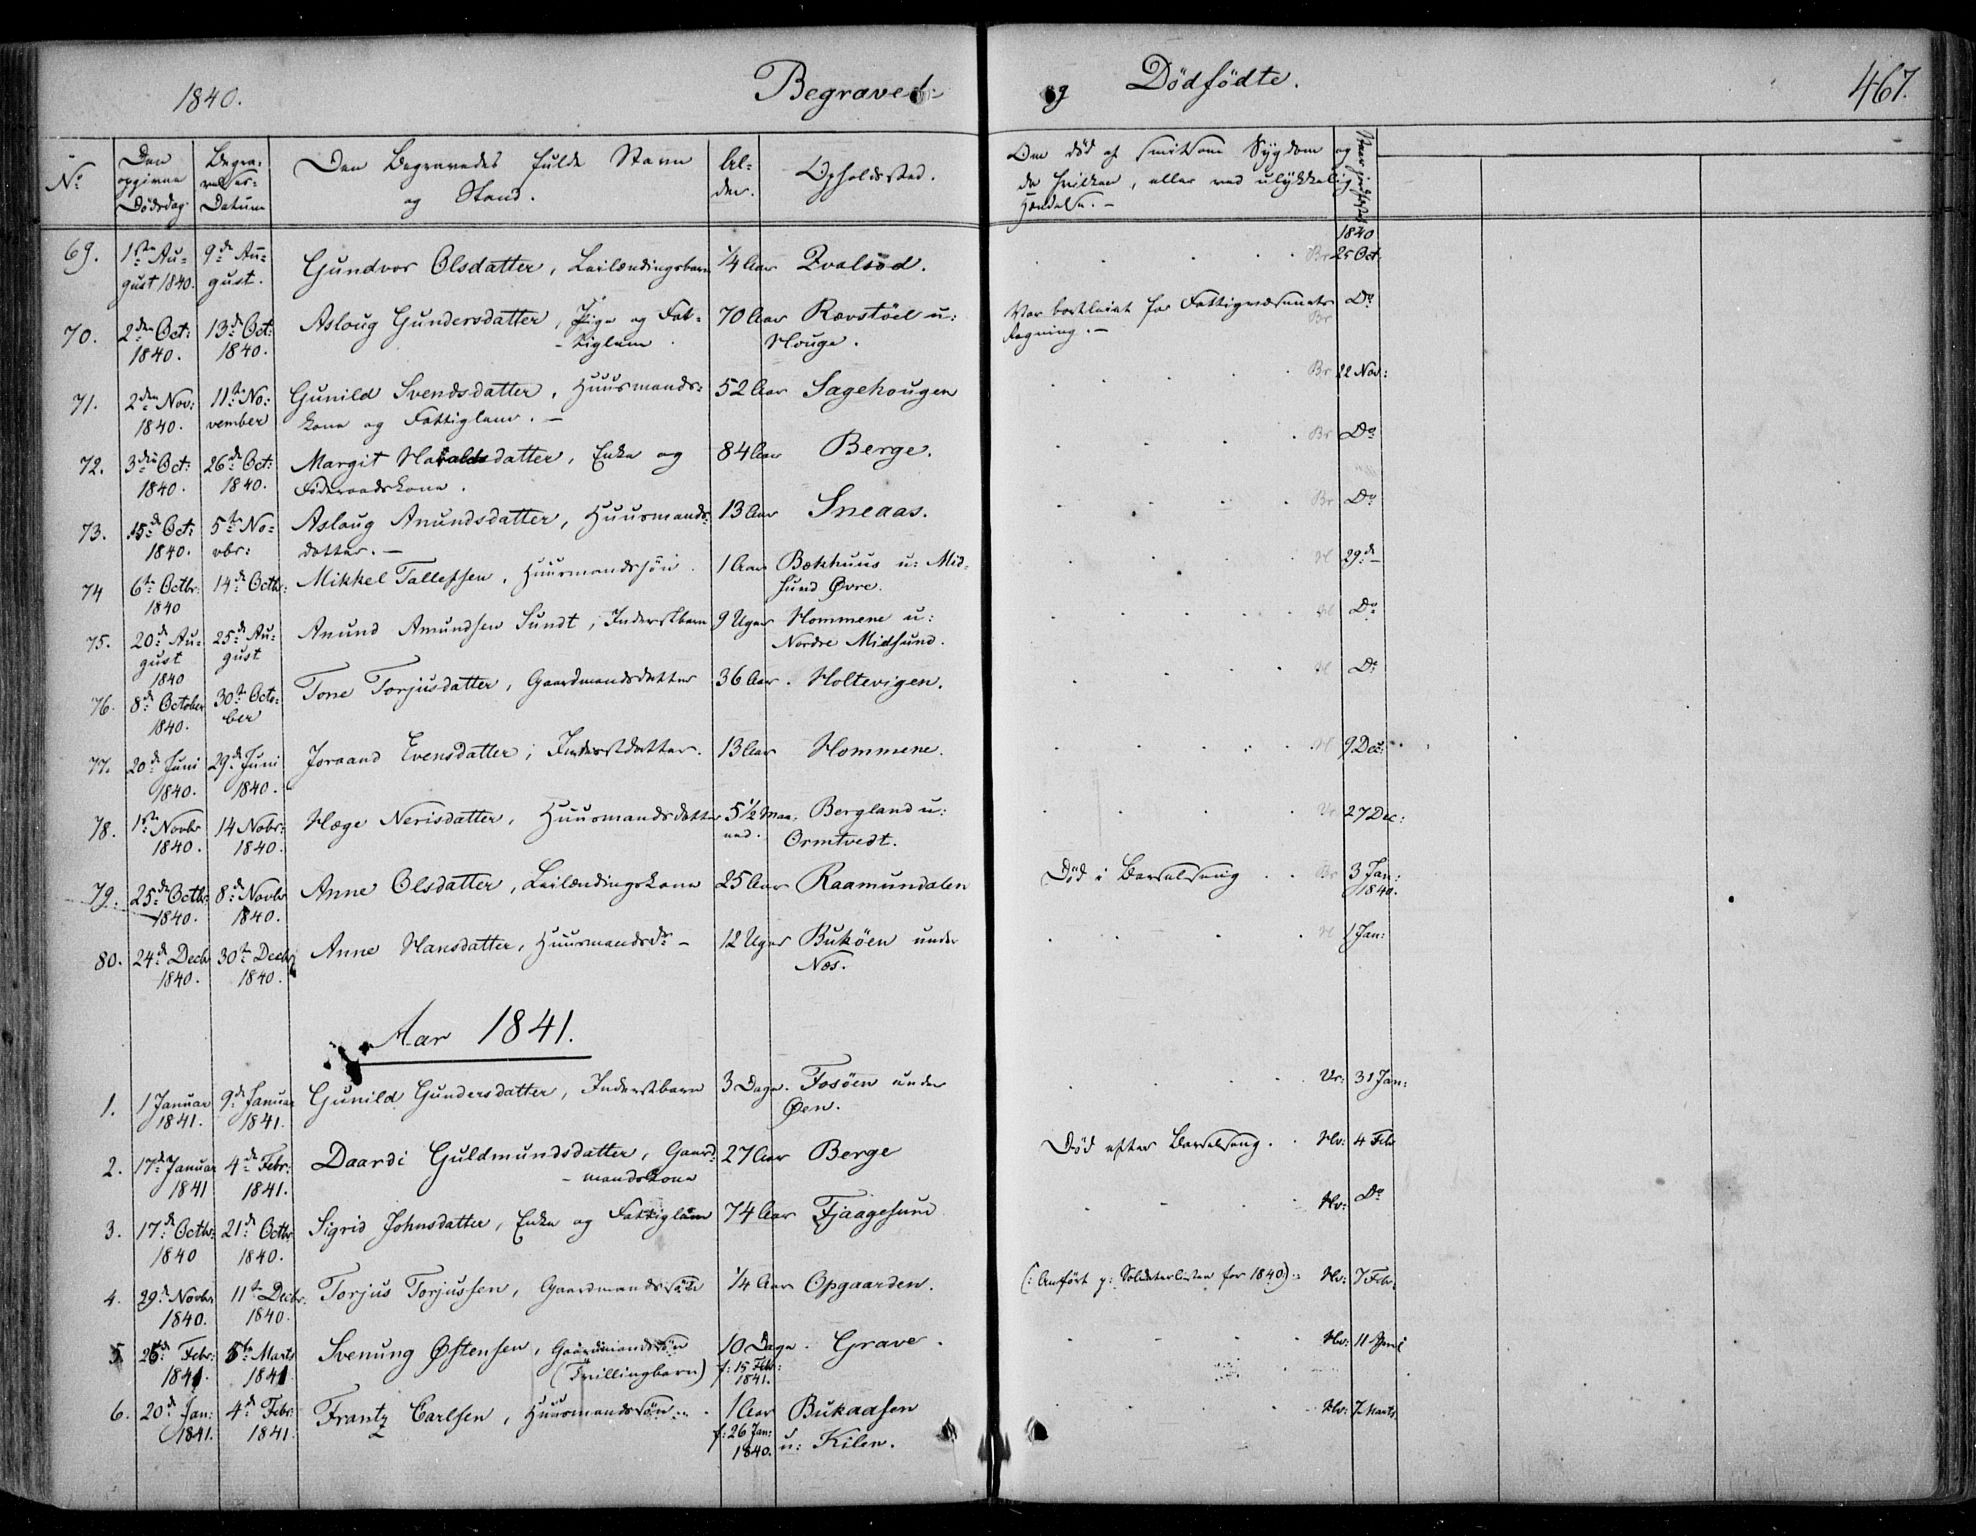 1840. Begravede og Dødfødte. 467.
No Den opgivne Dødsdag. Begravelses-Datum Den Begravedes fulde Navn og Stand. Alder. Opholdssted. Om død af smitsom Sygdom og da hvilken, eller ved ulykkelig Hændelse. —
1840
69. 1ste August 1840. 9de August. Gundvor Olsdatter, Leilændingsbarn 1/4 Aar Qvalsød. Br 25 Oct.
70. 2den Oct: 1840. 13de Oct: 1840. Asloug Gundersdatter, Pige og Fattiglem. 70 Aar Rævstöel u: Houge. Var bortleiet for Fattigvæsenets Regning. — Br Do
71. 2den Nov: 1840. 11te November Gunild Svendsdatter, Huusmandskone og Fattiglem. — 52 Aar Sagehougen Br 22 Nov:
72. 3die Oct: 1840. 26de Oct: 1840. Margit Haraldsdatter, Enke og Föderaadskone. 84 Aar Berge. Br Do
73. 15de Oct: 1840. 5te Novbr: Asloug Anundsdatter, Huusmandsdatter. — 13 Aar Sneaas. Br Do
74 6te Octbr: 1840 14de Octbr: Mikkel Tallefsen, Huusmandssön. 1 Aar Bækhuus u: Midsund Øvre. H 29de —
75. 20de August 1840 25de August Anund Amundsen Sundt, Inderstbarn 9 Uger Hommene u: Nordre Midsund. H Do
76. 8de October 1840. 30te October Tone Torjusdatter, Gaardmandsdatter 36 Aar. Holtevigen. H Do
77. 20de Juni 1840. 29de Juni 1840. Joraand Evensdatter, Inderstdatter. 13 Aar Hommene. H 9 Dec:
78. 1ste Novbr 1840. 14 Nobr: 1840. Hæge Nerisdatter, Huusmandsdatter 5 1/2 Maaned. Bergland u: Ormtvedt. Vr 27 Dec:
79. 25de Octbr: 1840. 8de Novbr 1840. Anne Olsdatter, Leilændingskone 25 Aar Raamundalen Död i Barselseng Br 3 Jan: 1840.
80. 24de Decbr 1840. 30te Decbr 1840. Anne Hansdatter, Huusmandsdr — 12 Uger Buköen under Næs. H 1 Jan:
Aar 1841.
1. 1 Januar 1841. 9de Januar 1841. Gunild Gundersdatter, Inderstbarn 3 Dage. Fosöen under Øen. Vr: 31 Jan:
2. 17de Januar 1841 4de Febr: 1841. Daardi Guldmundsdatter, Gaardmandskone 27 Aar Berge Död efter Barselseng. Hv: 4 Febr
3. 17de Octbr: 1840 21de Octbr 1840. Sigrid Johnsdatter, Enke og Fattiglem 74 Aar Fjaagesund Hv: Do
4. 29de Novbr 1840. 11te Decbr. 1840. Torjus Torjussen, Gaardmandssön 1/4 Aar Opgaarden. (: Anfört p: Soldaterlisten for 1840) Hv: 7 Febr.
5 26de Febr: 1841. 5te Marts 1841 Svenung Østensen, Gaardmandssön (Tvillingbarn) 10 Dage. f: 15 Febr: 1841. Grave. Hv: 11 April
6. 20de Jan: 1841. 4de Febr: 1841. Frantz Carlsen, Huusmandssön. 1 Aar f: 26 Jan: 1840. Bukaasen u: Kilen. Hv: 7 Marts